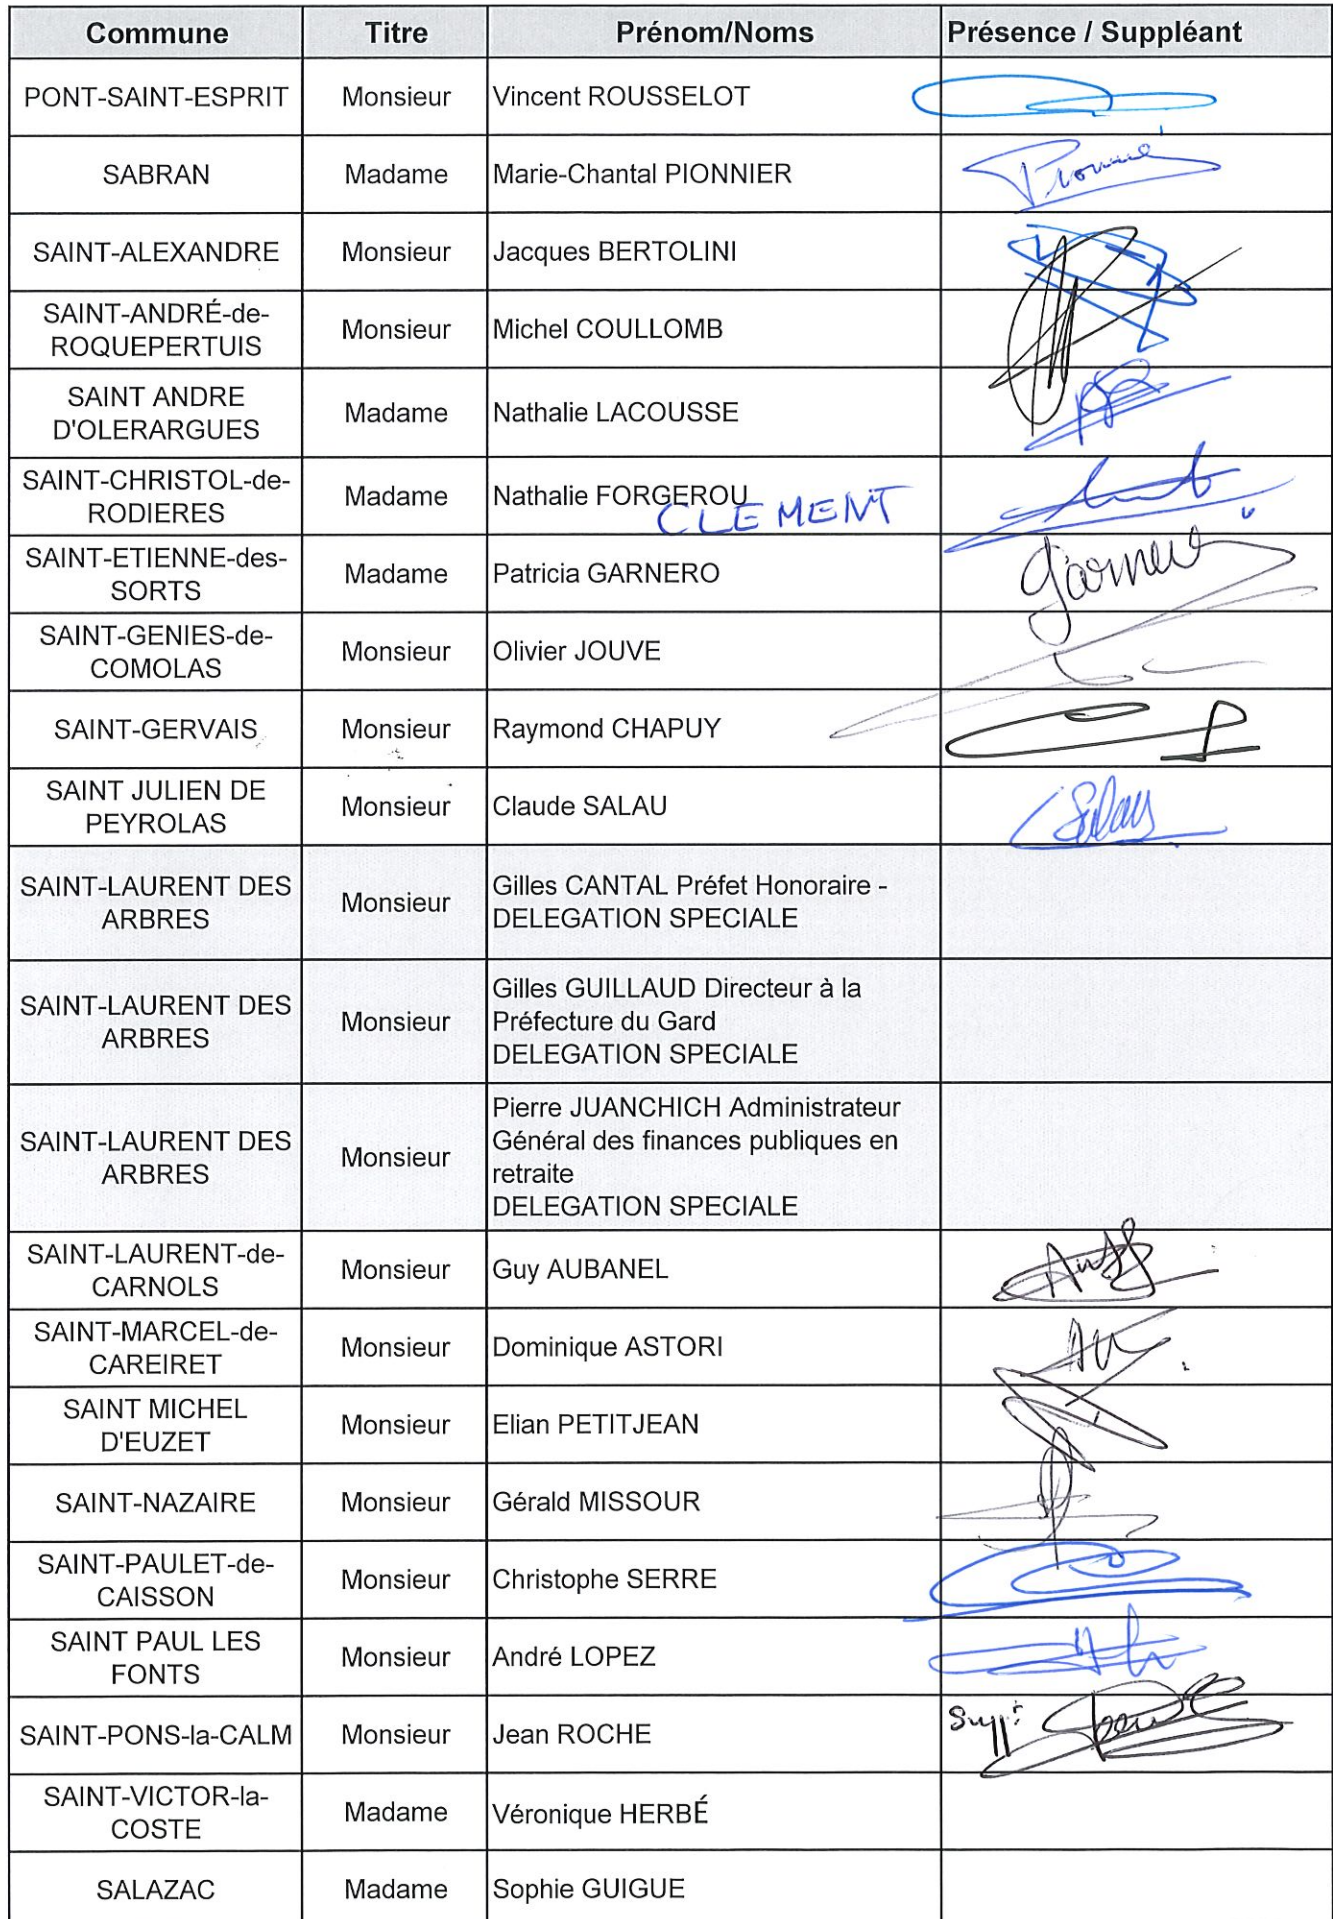 Commune Titre Prénom/Noms Présence / Suppléant
PONT-SAINT-ESPRIT Monsieur Vincent ROUSSELOT
SABRAN Madame Marie-Chantal PIONNIER
SAINT-ALEXANDRE Monsieur Jacques BERTOLINI
SAINT-ANDRÉ-de-
ROQUEPERTUIS Monsieur Michel COULLOMB
SAINT ANDRE
D'OLERARGUES Madame Nathalie LACOUSSE
SAINT-CHRISTOL-de-
RODIERES Madame Nathalie FORGEROU
CLEMENT
SAINT-ETIENNE-des-
SORTS Madame Patricia GARNERO
SAINT-GENIES-de-
COMOLAS Monsieur Olivier JOUVE
SAINT-GERVAIS Monsieur Raymond CHAPUY
SAINT JULIEN DE
PEYROLAS Monsieur Claude SALAU
Salau
SAINT-LAURENT DES
ARBRES Monsieur Gilles CANTAL Préfet Honoraire -
DELEGATION SPECIALE
SAINT-LAURENT DES
ARBRES Monsieur Gilles GUILLAUD Directeur à la
Préfecture du Gard
DELEGATION SPECIALE
SAINT-LAURENT DES
ARBRES Monsieur Pierre JUANCHICH Administrateur
Général des finances publiques en
retraite
DELEGATION SPECIALE
SAINT-LAURENT-de-
CARNOLS Monsieur Guy AUBANEL
SAINT-MARCEL-de-
CAREIRET Monsieur Dominique ASTORI
SAINT MICHEL
D'EUZET Monsieur Elian PETITJEAN
SAINT-NAZAIRE Monsieur Gérald MISSOUR
SAINT-PAULET-de-
CAISSON Monsieur Christophe SERRE
SAINT PAUL LES
FONTS Monsieur André LOPEZ
SAINT-PONS-la-CALM Monsieur Jean ROCHE
SAINT-VICTOR-la-
COSTE Madame Véronique HERBÉ
SALAZAC Madame Sophie GUIGUE